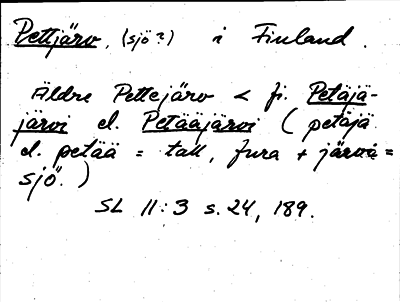 Pettjärv, (sjö?) i Finland.
Äldre Pettejärv < fi. Petäjä-
järvi el. Petääjärvi (petäjä
el. petää = tall, fura + järvi =
sjö.)
SL II:3 s. 24, 189.